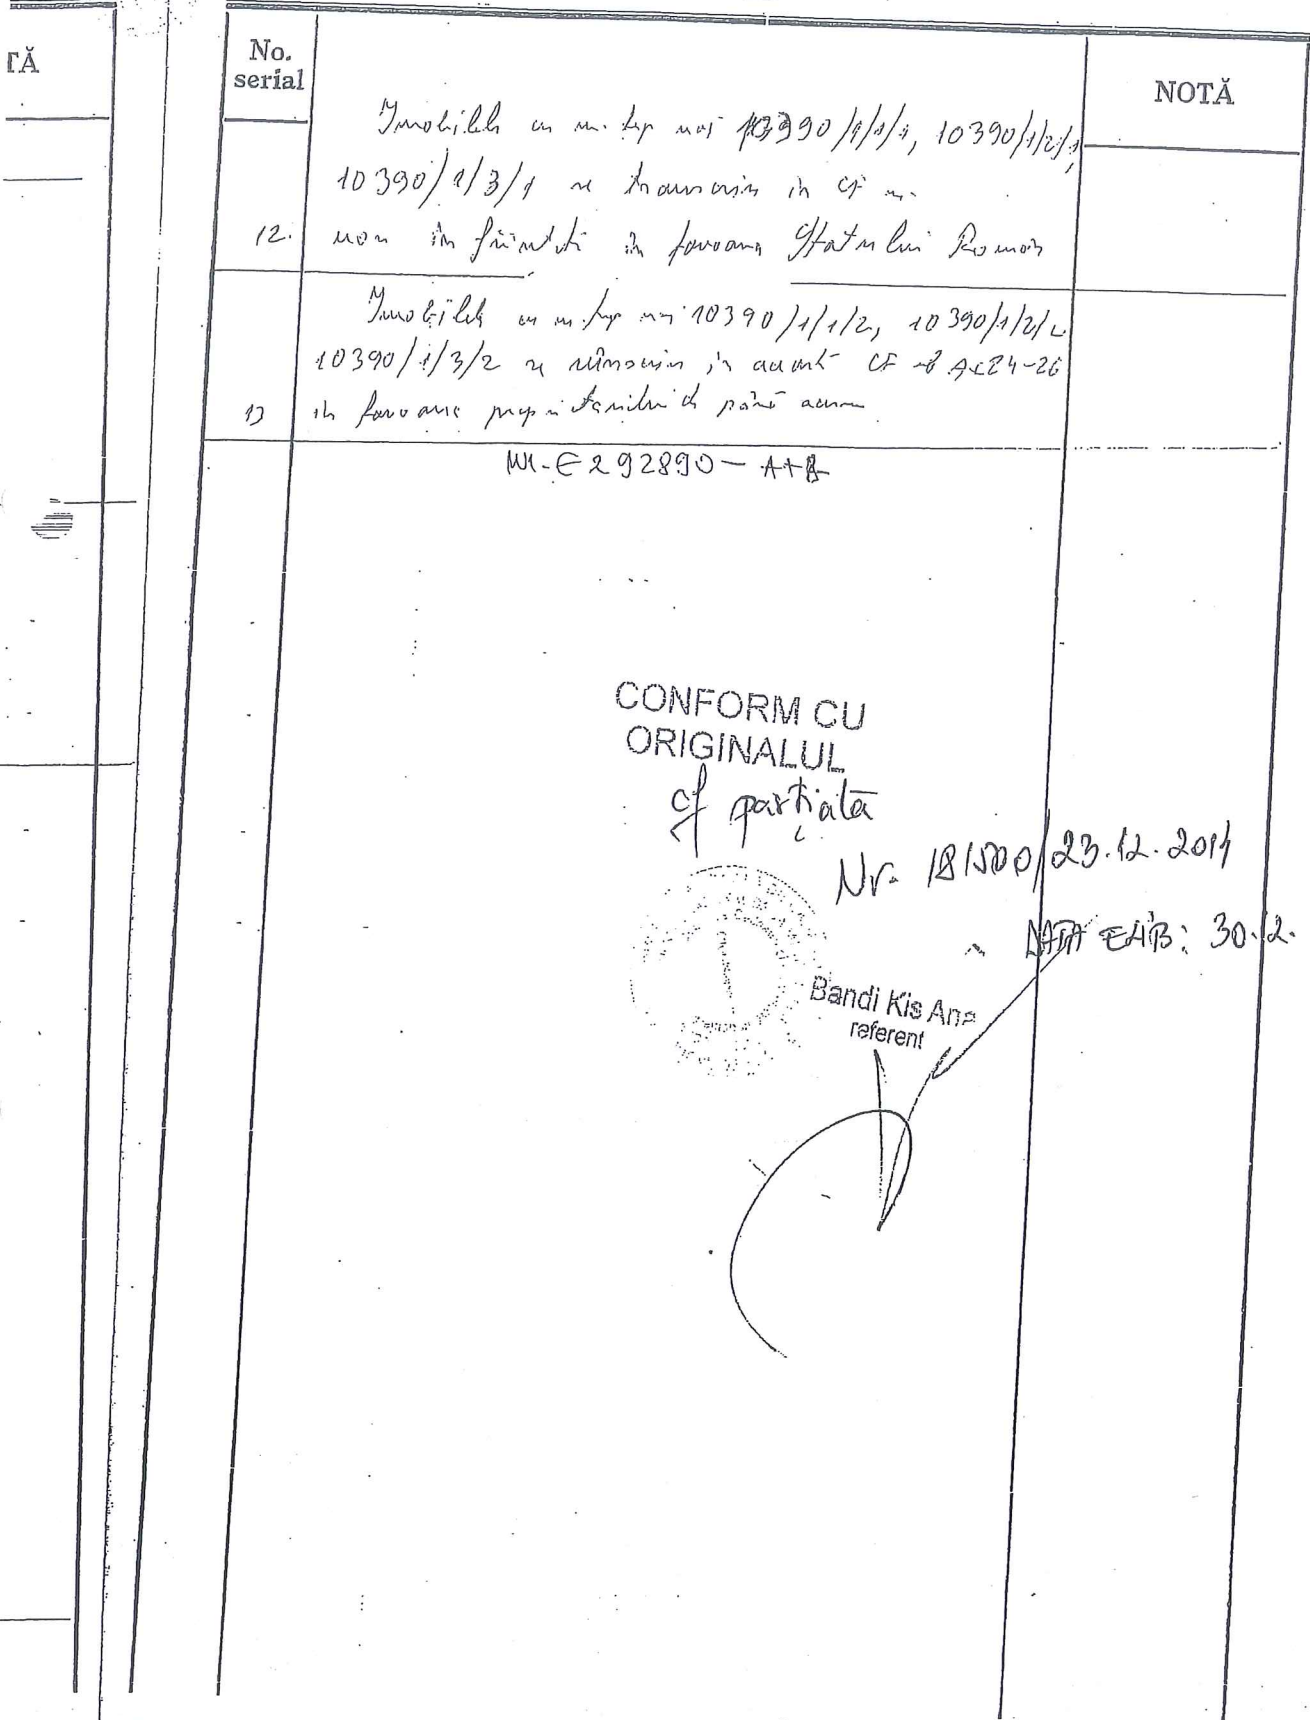 TĂ
No.
serial
NOTĂ
Imobilele cu nr. top noi 10390/1/1/1, 10390/1/2/1,
10390/1/3/1 se transcriu in CF nr.
12. nou înființată în favoarea Statului Român
Imobilele cu nr. top noi 10390/1/1/2, 10390/1/2/2
10390/1/3/2 se reînscriu in această CF A+24-26
13 in favoarea proprietarilor de până acum
292890 - A+
CONFORM CU
ORIGINALUL
cf parțiată
Nr. 181500/23.12.2011
DATA ELIB: 30.12.
Bandi Kis Ana
referent